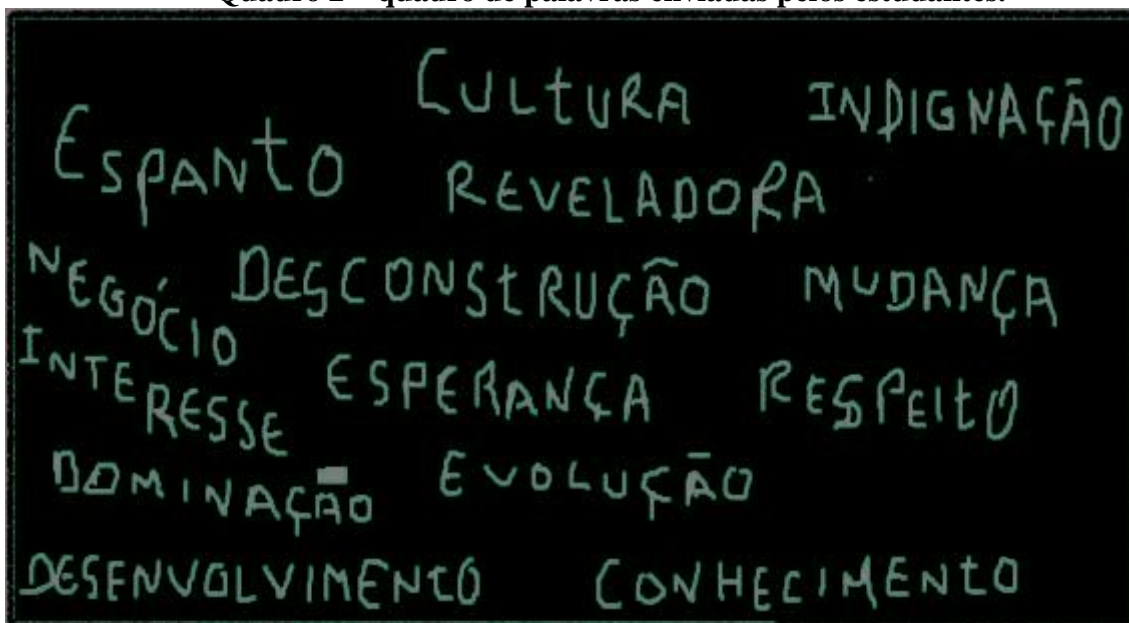 Quadro 2 – quadro de palavras enviadas pelos estudantes.
CULTURA INDIGNAÇÃO
ESPANTO REVELADORA
NEGÓCIO DESCONSTRUÇÃO MUDANÇA
INTERESSE ESPERANÇA RESPEITO
DOMINAÇÃO EVOLUÇÃO
DESENVOLVIMENTO CONHECIMENTO